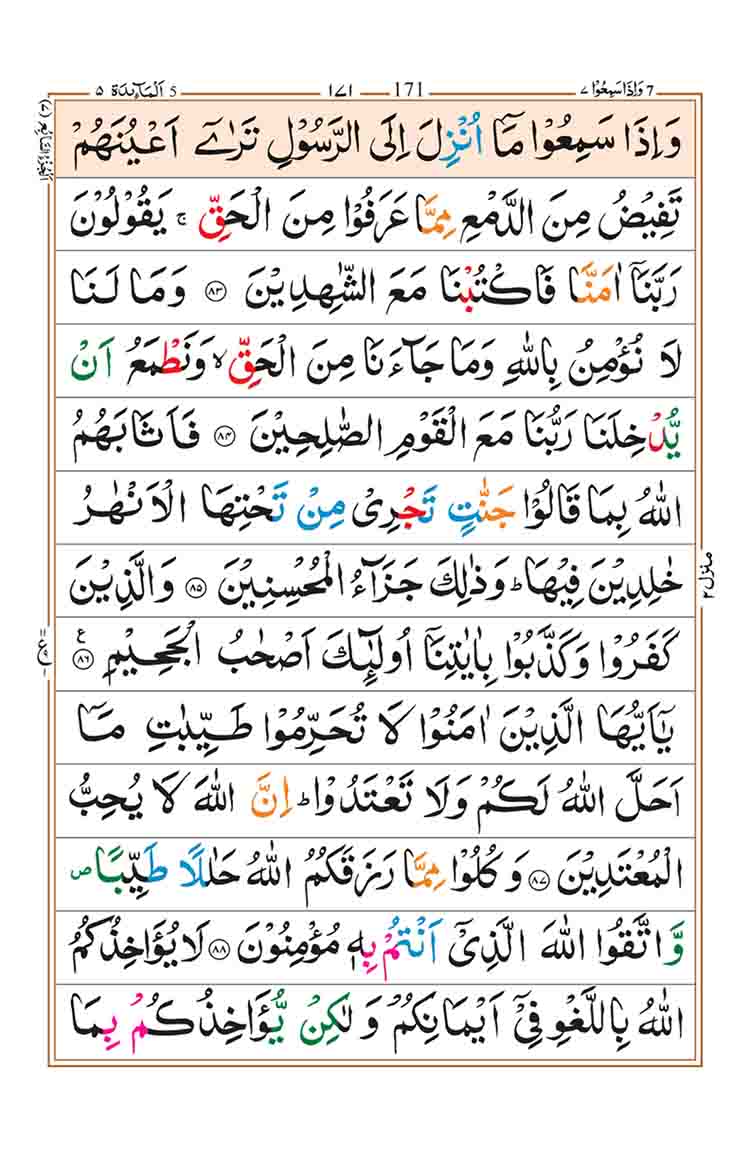 وَاِذَا سَمِعُوْا ٧ 7 171 ١٧١ 5 اَلْمَآئِدَة ٥
وَاِذَا سَمِعُوْا مَاۤ اُنْزِلَ اِلَى الرَّسُوْلِ تَرٰۤى اَعْيُنَهُمْ
تَفِيْضُ مِنَ الدَّمْعِ مِمَّا عَرَفُوْا مِنَ الْحَقِّ ۚ يَقُوْلُوْنَ
رَبَّنَاۤ اٰمَنَّا فَاكْتُبْنَا مَعَ الشّٰهِدِيْنَ ﴿٨٣﴾ وَمَا لَنَا
لَا نُؤْمِنُ بِاللّٰهِ وَمَا جَآءَنَا مِنَ الْحَقِّ ۙ وَنَطْمَعُ اَنْ
يُّدْخِلَنَا رَبُّنَا مَعَ الْقَوْمِ الصّٰلِحِيْنَ ﴿٨٤﴾ فَاَثَابَهُمُ
اللّٰهُ بِمَا قَالُوْا جَنّٰتٍ تَجْرِىْ مِنْ تَحْتِهَا الْاَنْهٰرُ
خٰلِدِيْنَ فِيْهَا ؕ وَذٰلِكَ جَزَآءُ الْمُحْسِنِيْنَ ﴿٨٥﴾ وَالَّذِيْنَ
كَفَرُوْا وَكَذَّبُوْا بِاٰيٰتِنَاۤ اُولٰٓئِكَ اَصْحٰبُ الْجَحِيْمِ ﴿٨٦﴾ ع
يٰۤاَيُّهَا الَّذِيْنَ اٰمَنُوْا لَا تُحَرِّمُوْا طَيِّبٰتِ مَاۤ
اَحَلَّ اللّٰهُ لَكُمْ وَلَا تَعْتَدُوْا ؕ اِنَّ اللّٰهَ لَا يُحِبُّ
الْمُعْتَدِيْنَ ﴿٨٧﴾ وَكُلُوْا مِمَّا رَزَقَكُمُ اللّٰهُ حَلٰلًا طَيِّبًا ص
وَّاتَّقُوا اللّٰهَ الَّذِىْۤ اَنْتُمْ بِهٖ مُؤْمِنُوْنَ ﴿٨٨﴾ لَا يُؤَاخِذُكُمُ
اللّٰهُ بِاللَّغْوِ فِىْۤ اَيْمَانِكُمْ وَلٰكِنْ يُّؤَاخِذُكُمْ بِمَا
منزل ٢